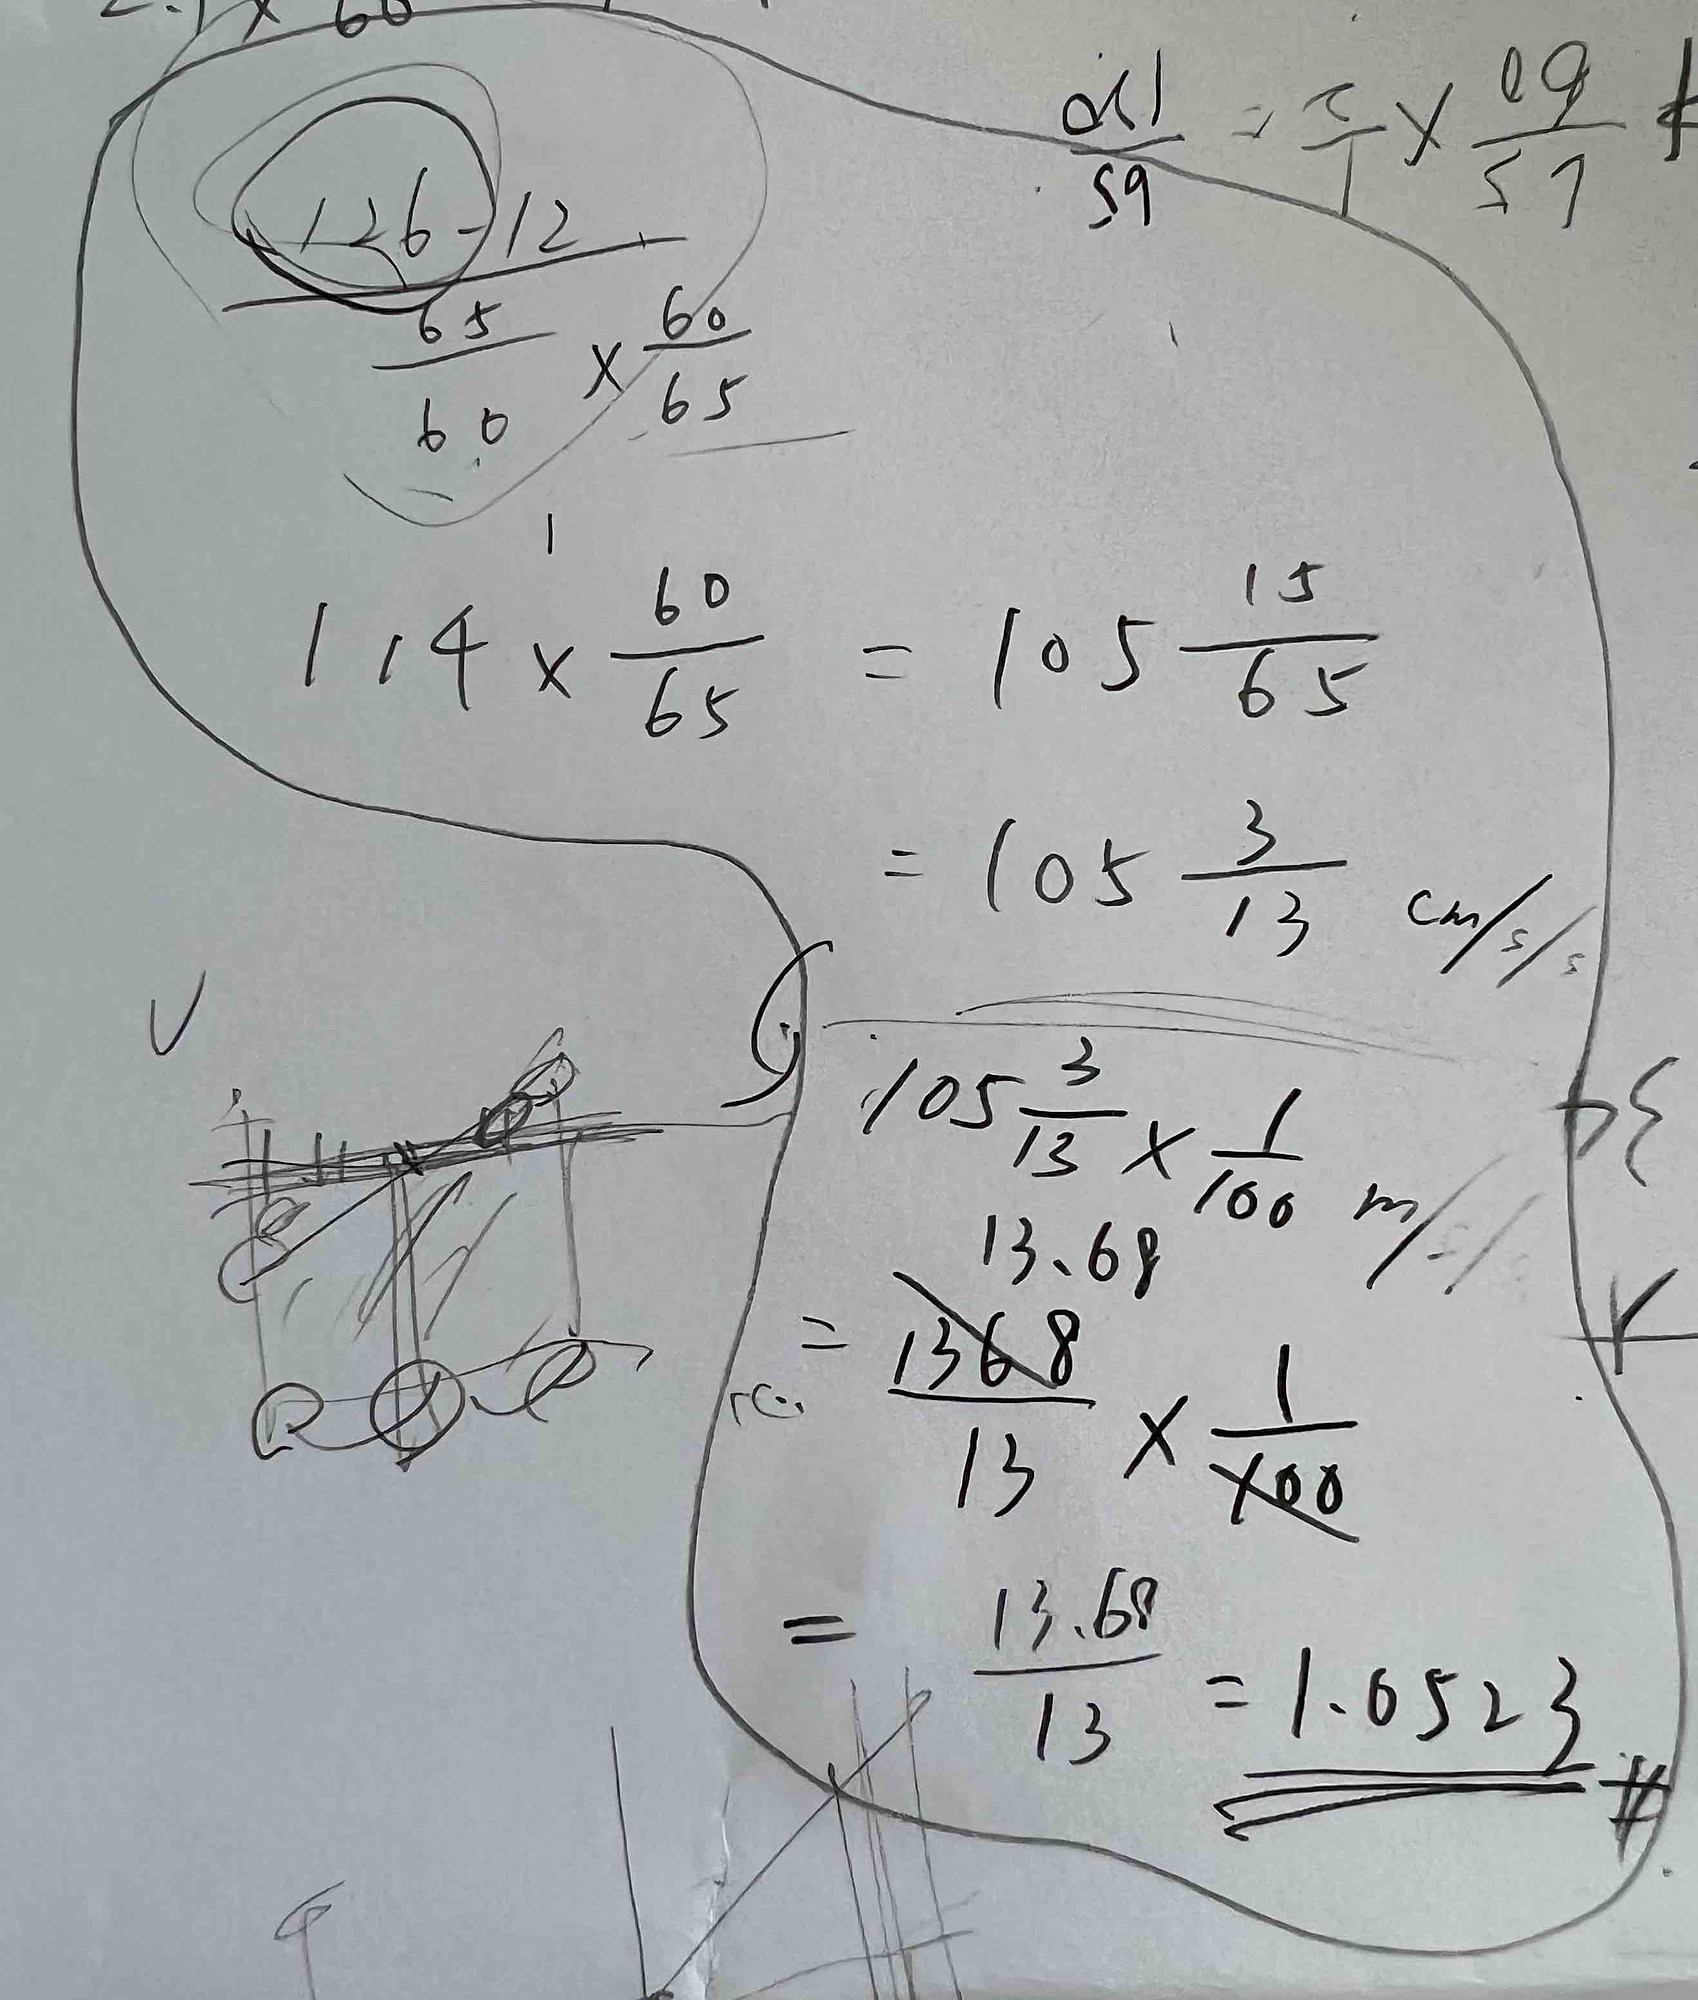 126-12
65/60 × 60/65
114 × 60/65 = 105 15/65
= 105 3/13 cm/s/s
105 3/13 × 1/100 m/s/s
13.68
= 1368/13 × 1/100
= 13.68/13 = 1.0523